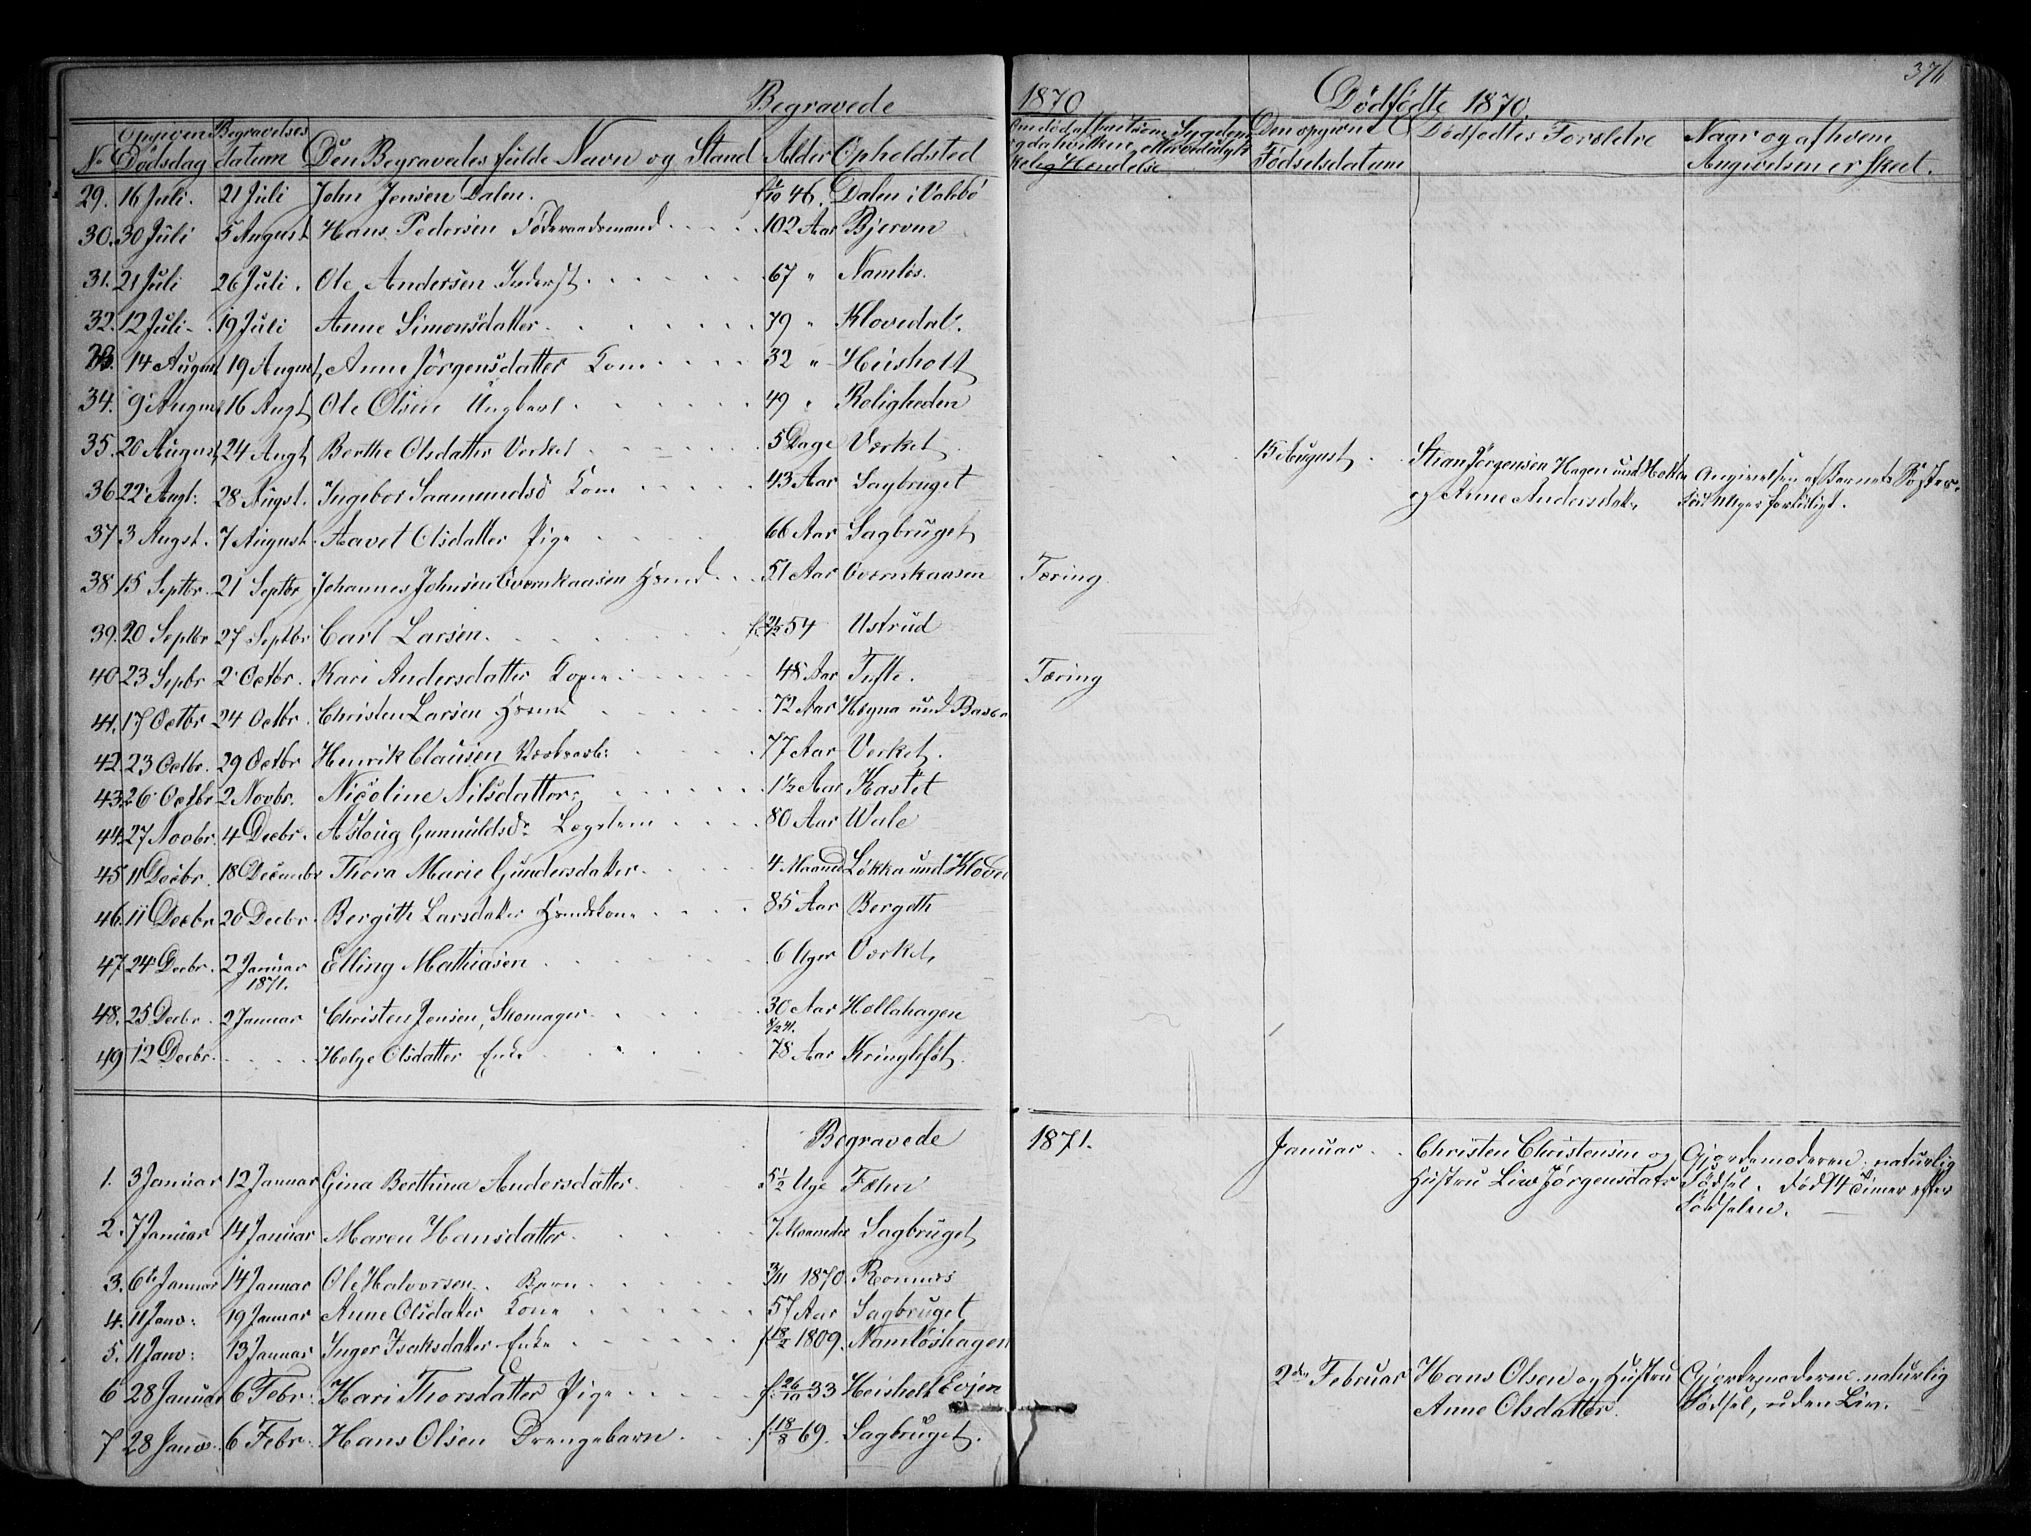 376
Begravede 1870 Dødfødte 1870.
No Opgiven Dødsdag Begravelses datum Den Begravedes fulde Navn og Stand Alder Opholdsted
Den opgivne Fødselsdatum Dødfødtes Forældre Naar og af hvem Angivelsen er skeet.
29. 16 Juli. 21 Juli John Jensen Dalen. 46. Dalen i Valebö
30. 30 Juli 5 August Hans Pedersen Föderaadsmand 102 Aar Bjerven
31. 21 Juli 26 Juli. Ole Andersen Inderst 67 " Namløs.
32. 12 Juli 19 Juli Anne Simonsdatter 79 " Klovedal.
33. 14 August 19 August, Anne Jörgensdatter Kone 32 " Heisholt
34. 9 August 16 Augt Ole Olsen Ungkarl 49 " Roligheden
35. 20 August 24 Augt Berthe Olsdatter Verket 5 Dage Værket
15 August Stian Jörgensen Hagen und Holte Angivelsen af Barnets Søster.
og Anne Andersdatr Uger fortidligt.
36. 22 Augt: 28 Augst. Ingebor Saamundsd Kone 43 Aar Sagbruget
37 3 Augst. 7 August Aavet Olsdatter Pige 66 Aar Sagbruget
38 15 Septbr. 21 Septbr Johannes Johnsen Overnkaasen Hsmd 51 Aar Overnkaasen Tæring.
39. 20 Septbr 27 Septbr Carl Larsen. f. 54 Ustrud
40 23 Sepbr 2 Octbr. Kari Andersdatter Kone 48 Aar Tufte. Tæring
41. 17 Octbr 24 Octbr. Christen Larsen Hsmd 72 Aar Høgna und
42. 23 Octbr. 29 Octbr Henrik Clausen 77 Aar Verket.
43. 26 Octbr 2 Novbr. Nicoline Nilsdatter 1½ Aar Kastet
44. 27 Novbr. 4 Decbr. Aslaug Gunnuldsdr Lægdslem 80 Aar Wale
45 11 Decbr. 18 Decembr Thora Marie Gundersdatter 4 Maaned Løkka und Klove
46. 11 Decbr 20 Decbr. Bergitte Larsdatter Hsmdskone 85 Aar Bergeth
47 24 Decbr. 2 Januar 1871. Elling Mathiasen 6 Uger Værket,
48. 25 Decbr. 2 Januar Christen Jensen, Skomager 30 Aar Hollahagen
8/2 41.
49 12 Decbr. Helge Olsdatter Enke 78 Aar Kringleföt.
Begravede 1871.
Januar. Christen Christensen og Gjordemoderen. naturlig
Hustru Live Jørgensdatr Fødsel. død 14 Timer efter
Fødselen.
1. 3 Januar 12 Januar Gina Berthina Andersdatter 5½ Uge Fæhn
2. 7 Januar 14 Januar Maren Hansdatter 7 Maaneder Sagbruget
3. 6te Januar 14 Januar Ole Halvorsen. Barn 3/11 1870. Romnæs
4. 11 Janv: 19 Januar Anne Olsdatter Kone 57 Aar Sagbruget
5. 11 Janv: 13 Januar Inger Isaksdatter Enke f. 18/2 1809. Namløshagen
6 28 Januar 6 Febr: Kari Thorsdatter Pige f. 26/10 33 Heisholt Evjen
2den Februar Hans Olsen og Hustru Gjordemoderen. naturlig
Anne Olsdatter. Fødsel, uden Liv.
7 28 Janv. 6 Febr. Hans Olsen Drengebarn f. 18/8 69. Sagbruget.